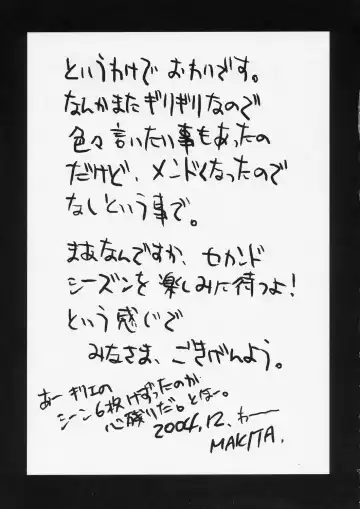 というわけで おわりです。
なんかまたギリギリなので
色々言いたい事もあったの
だけど、メンドくなったので
なしという事で。
まあなんですか、セカンド
シーズンを楽しみに待つよ!
という感じで
みなさま、ごきげんよう。
あーギリエの
シーン6枚けずったのが
心残りだ。とほー。
2004.12. わー
MAKITA.